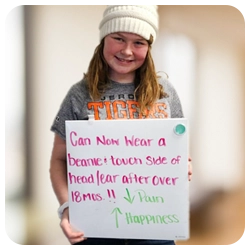 TIGERS
Can Now Wear a
beanie + touch side of
head/ear after over
18 mos.!! ↓ Pain
↑ Happiness